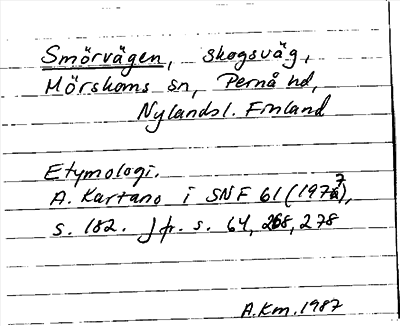 Smörvägen, skogsväg,
Mörskoms sn, Pernå hd,
Nylandsl. Finland
Etymologi.
A. Kartano i SNF 61 (1977),
s. 182. Jfr. s. 64, 268, 278
A.Km. 1987